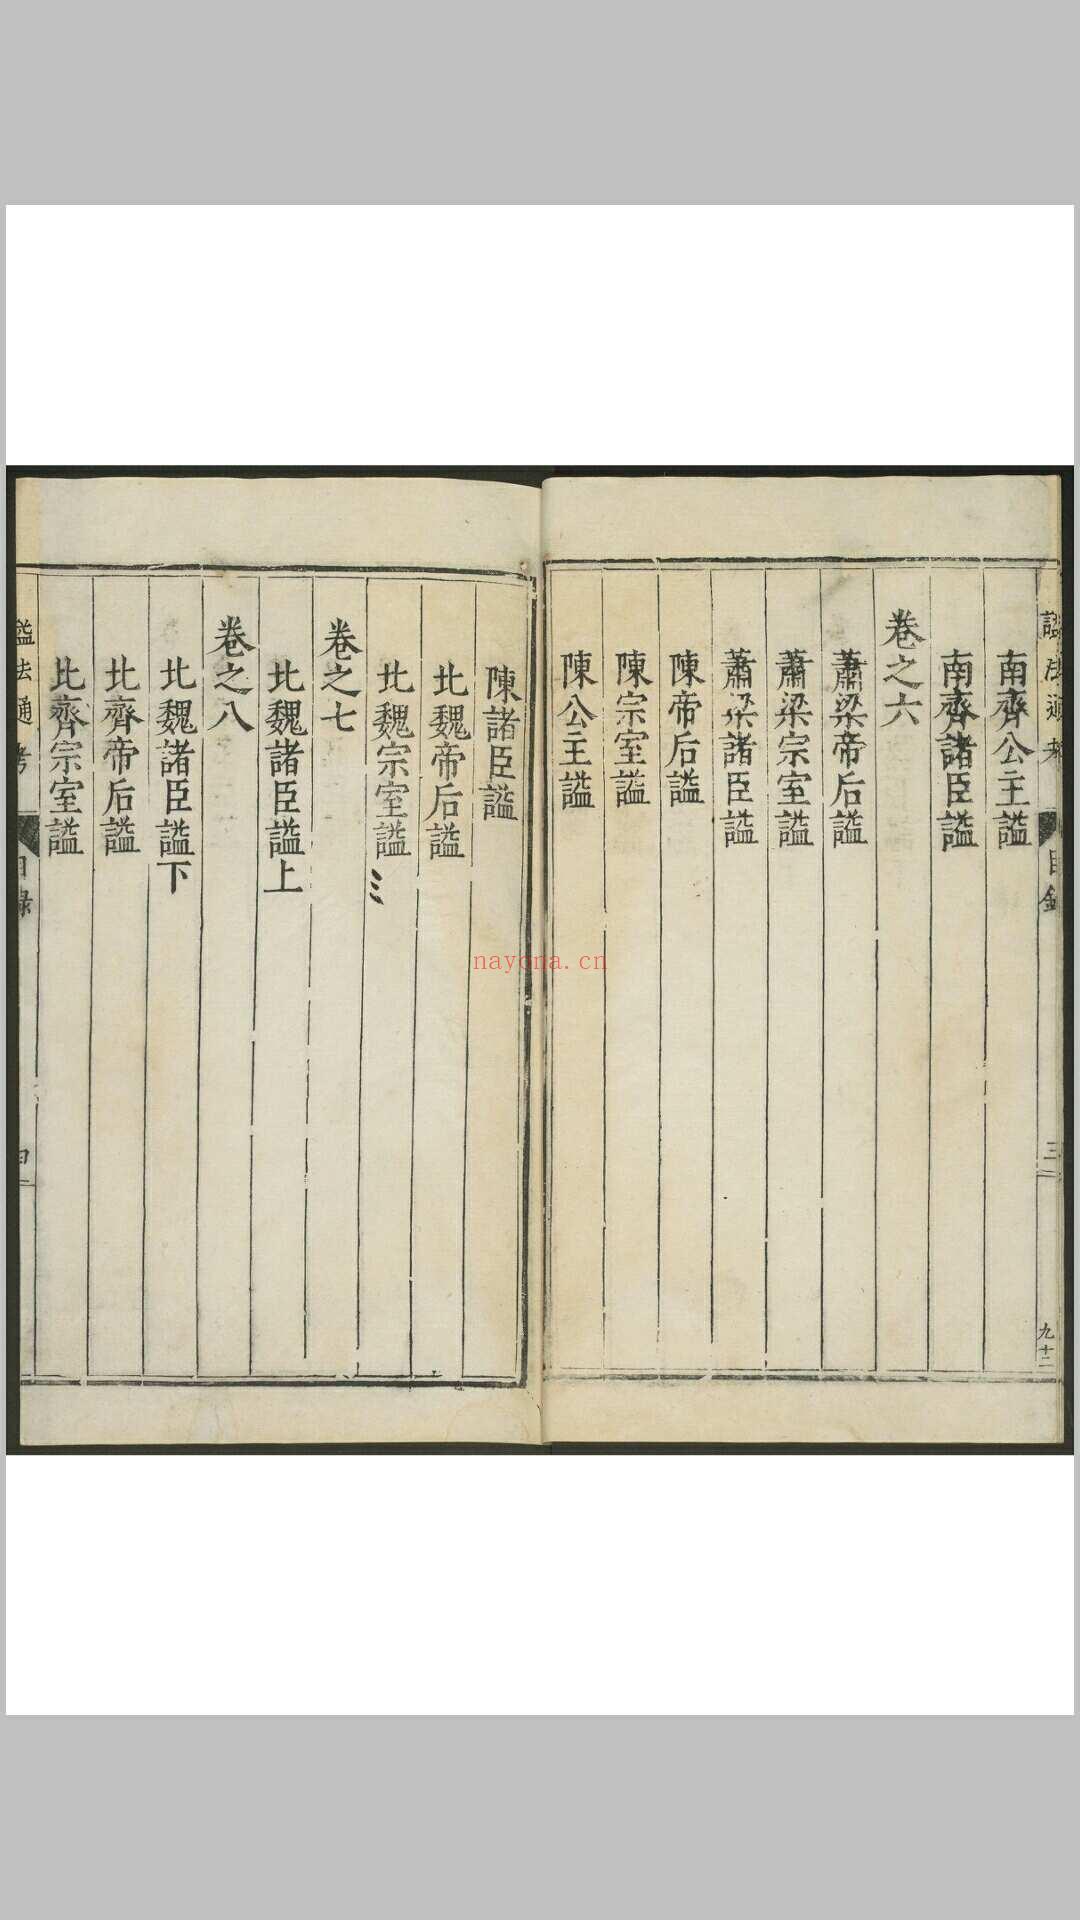 諡法通考
目錄
三
九十二
南齊公主謚
南齊諸臣謚
卷之六
蕭梁帝后謚
蕭梁宗室謚
蕭梁諸臣謚
陳帝后謚
陳宗室謚
陳公主謚
陳諸臣謚
北魏帝后謚
北魏宗室謚
卷之七
北魏諸臣謚上
卷之八
北魏諸臣謚下
北齊帝后謚
北齊宗室謚
謚法通考
目錄
四
nayona.cn